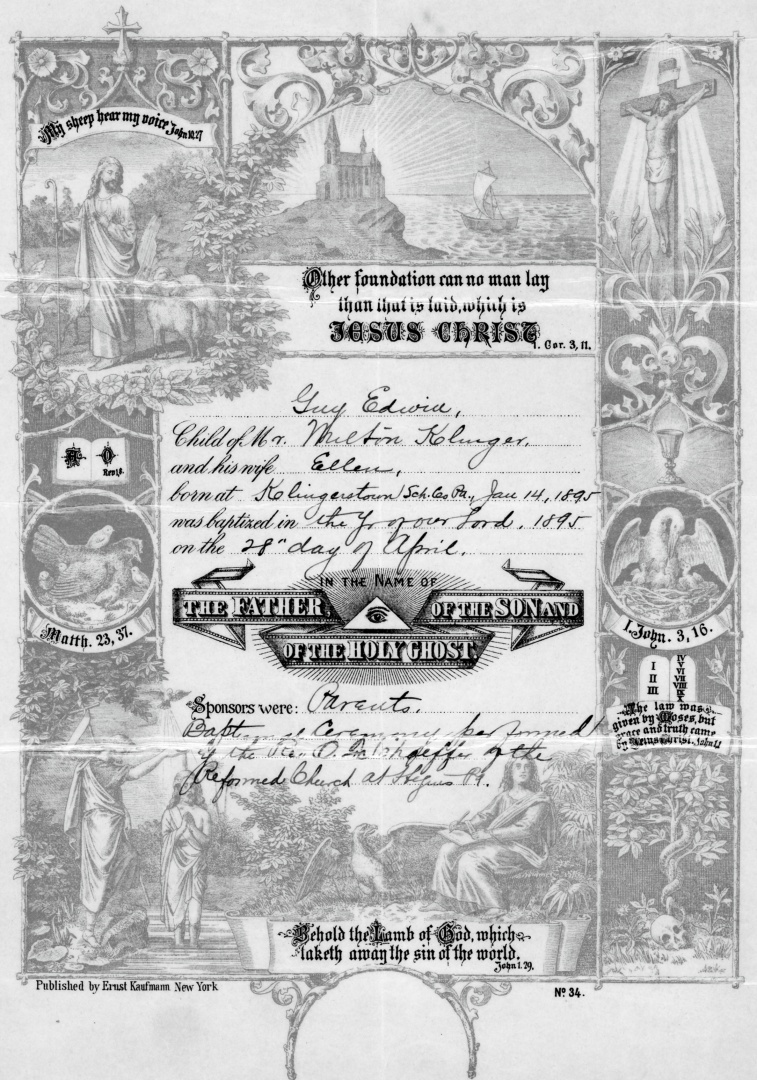 My sheep hear my voice John 10.27
Other foundation can no man lay
than that is laid, which is
JESUS CHRIST
1. Cor. 3, 11.
Guy Edwin,
Child of Mr. Milton Klinger,
and his wife Ellen,
born at Klingerstown, Sch. Co. Pa., Jan 14, 1895
was baptized in the Yr of our Lord, 1895
on the 28" day of April.
A O
Rev. 1,8.
IN THE NAME OF
THE FATHER, OF THE SON AND
OF THE HOLY GHOST.
Matth. 23, 37.
I. John. 3, 16.
I IV
II V
III VI
VII
VIII
IX
X
The law was
given by Moses, but
grace and truth came
by Jesus Christ. John 1.
Sponsors were: Parents.
Baptismal Ceremony performed
by the Rev. of the
Reformed Church at Hegins Pa.
Behold the Lamb of God, which
taketh away the sin of the world.
John 1. 29.
Published by Ernst Kaufmann New York
Nº 34.